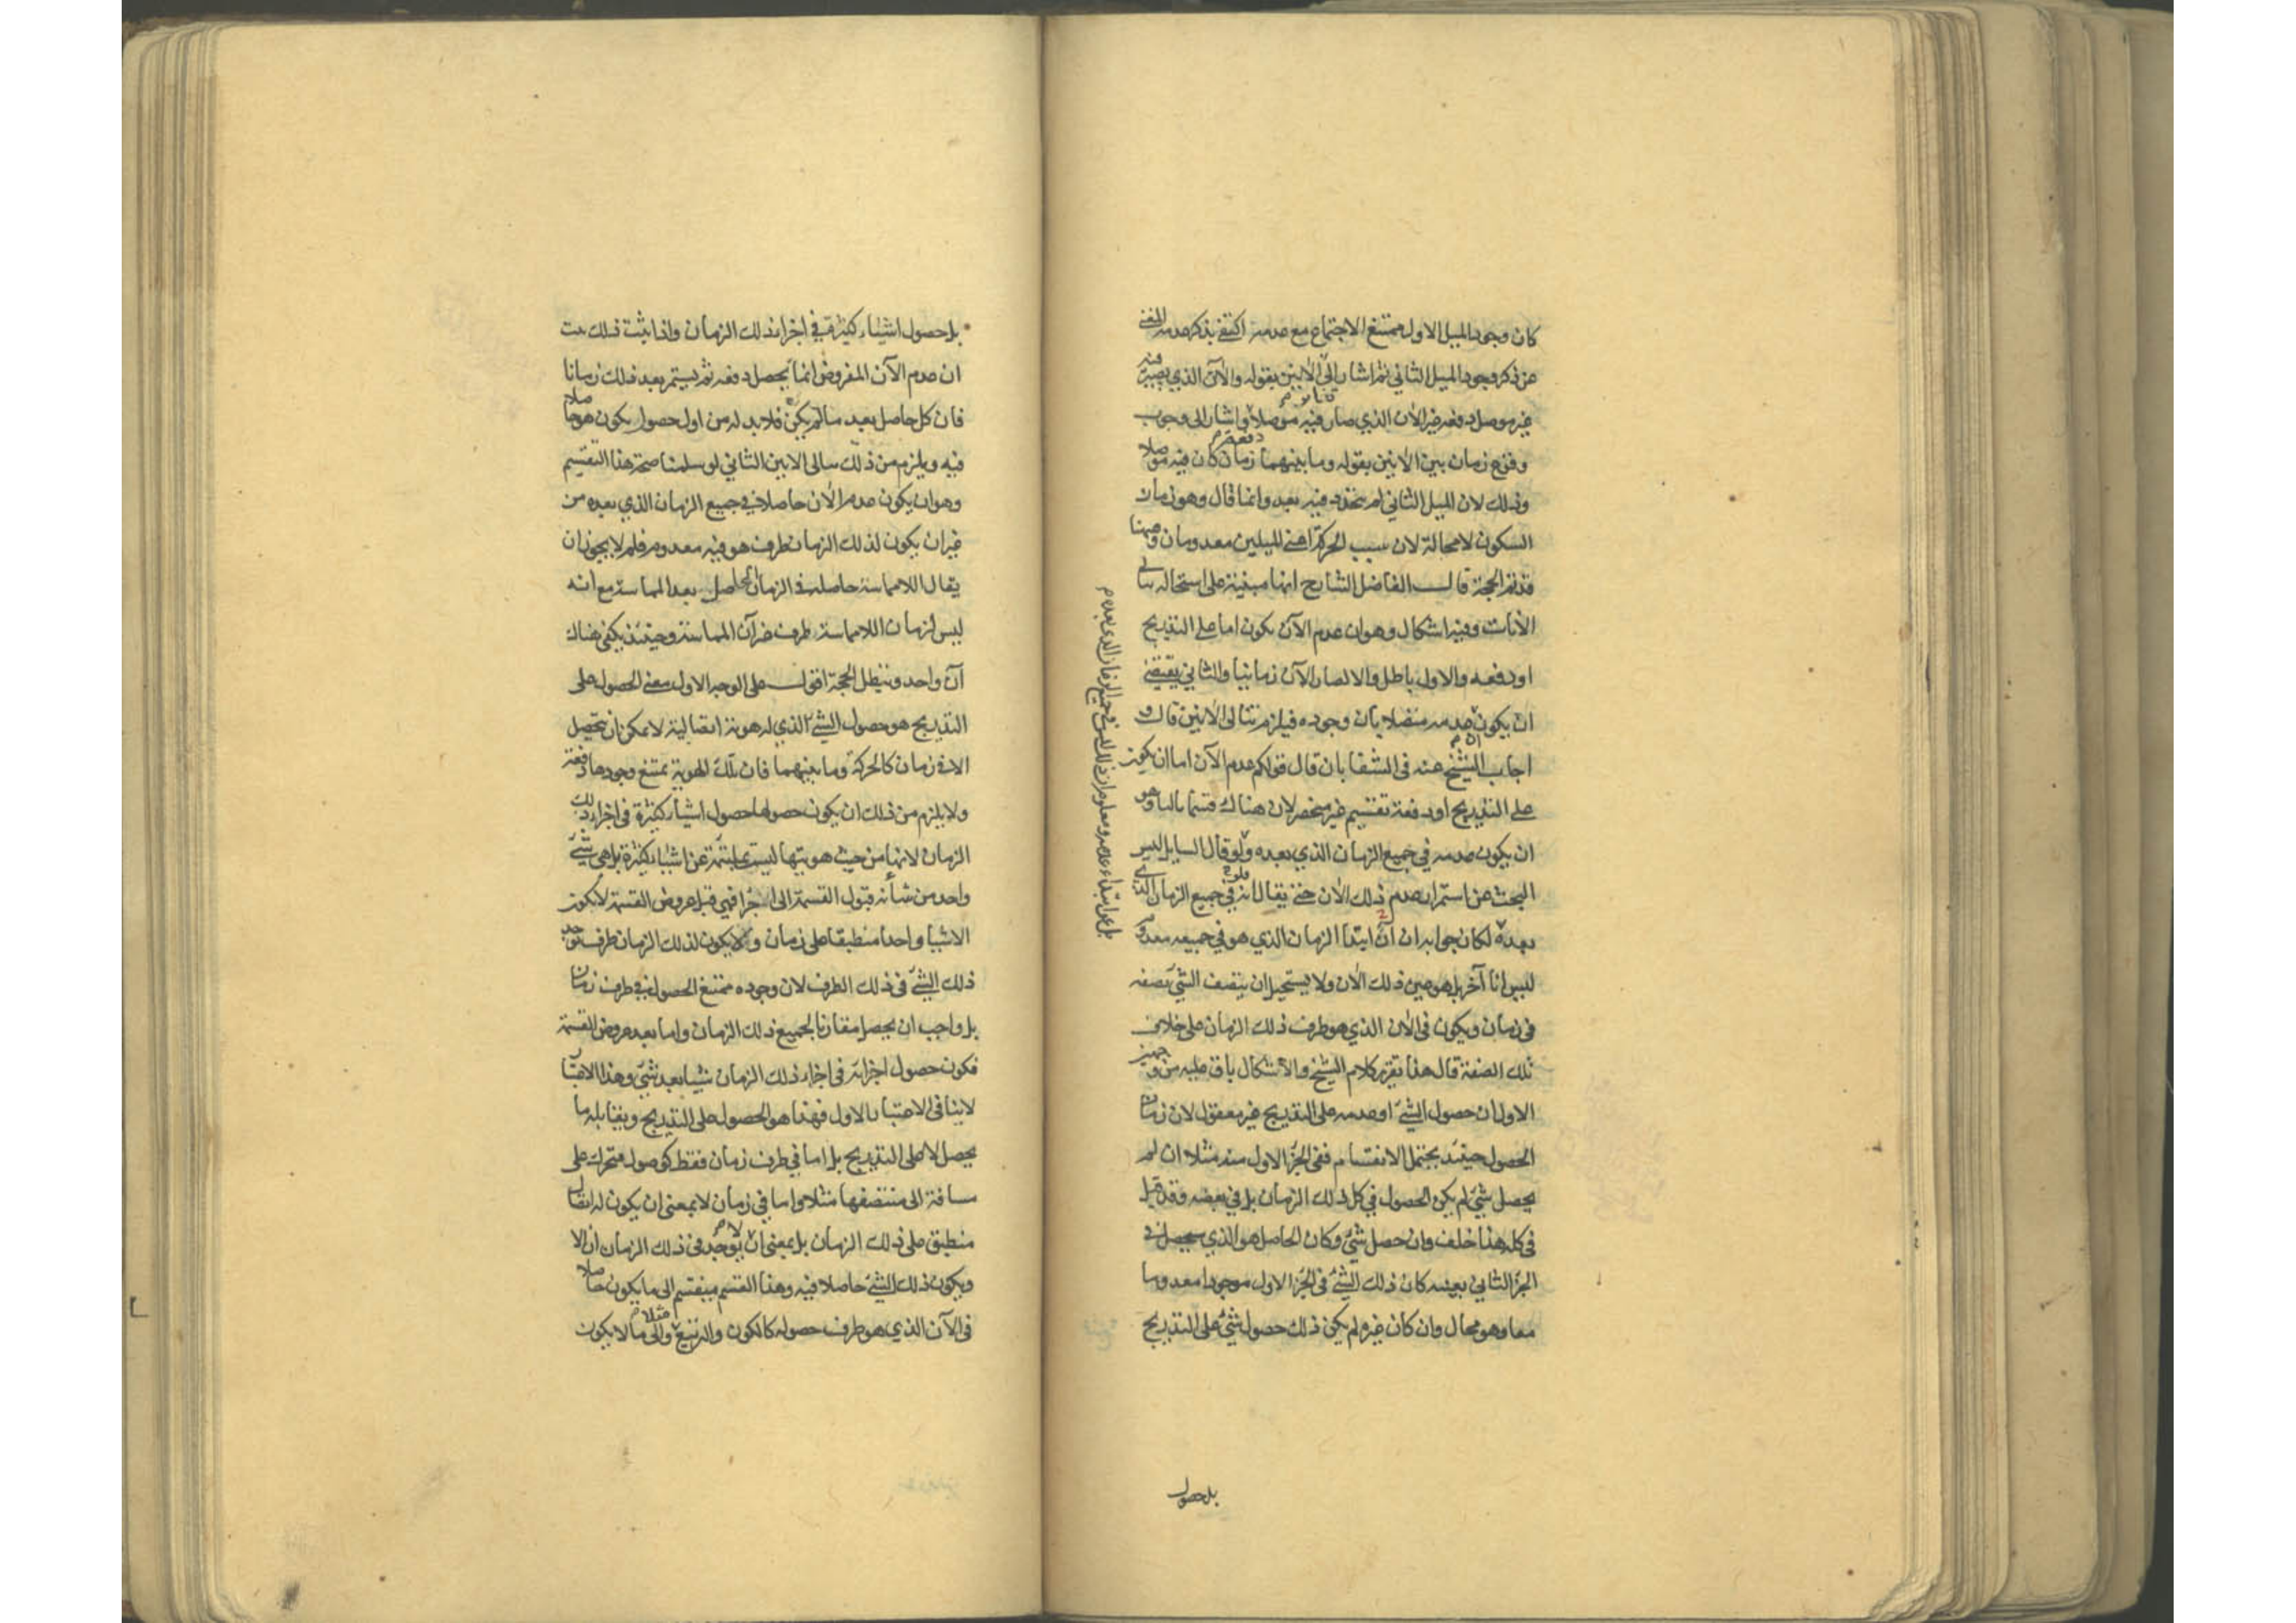 كان وجود الميل الاول ممتنع الاجتماع مع عدمه اكتفى بذكر عدمه المغنى
عن ذكر وجود الميل الثاني ثم اشار الى الآنين بقوله والآن الذي يصير فيه
غير موصل دفعة غير الآن الذي صار فيه موصلا واشار الى وجوب
وقوع زمان بين الآنين بقوله وما بينهما زمان كان فيه موصلا
وذلك لان الميل الثاني لم يتجدد فيه بعد وانما قال وهو زمان
السكون لا محالة لان سبب الحركة اعنى الميلين معدومان وههنا
قد تم الحجة قال الفاضل الشارح انها مبنية على استحالة تتالى
الآنات وفيه اشكال وهو ان عدم الآن يكون اما على التدريج
او دفعه والاول باطل والا لصار الآن زمانيا والثاني يقتضى
ان يكون عدمه متصلا بآن وجوده فيلزم تتالى الآنين قال و
اجاب الشيخ عنه فى الشفا بان قال قولكم عدم الآن اما ان يكون
على التدريج او دفعة تقسيم غير منحصر لان هناك قسما ثالثا وهو
ان يكون عدمه في جميع الزمان الذي بعده ولو قال السايل ليس
البحث عن استمرار عدم ذلك الآن حتى يقال انه في جميع الزمان الذي
بعده لكان جوابه ان ابتدا الزمان الذي هو في جميعه معدوم
ليس آنا آخر بل هو عين ذلك الآن ولا يستحيل ان يتصف الشئ بصفه
فى زمان ويكون فى الآن الذي هو طرف ذلك الزمان على خلاف
تلك الصفة قال هذا تقرير كلام الشيخ والاشكال باق عليه من وجهين
الاول ان حصول الشئ او عدمه على التدريج غير معقول لان زمان
الحصول حينئذ يحتمل الانقسام ففى الجزء الاول منه مثلا ان لم
يحصل شئ لم يكن الحصول في كل ذلك الزمان بل في بعضه وقد قيل
فى كله هذا خلف وان حصل شئ وكان الحاصل هو الذي سيحصل فى
الجزء الثاني بعينه كان ذلك الشئ فى الجزء الاول موجودا معدوما
معا وهو محال وان كان غيره لم يكن ذلك حصول شئ على التدريج
بل حصول
بل حصول اشياء كثيرة في اجزاء ذلك الزمان واذا ثبت ذلك ثبت
ان عدم الآن المفروض انما يحصل دفعه ثم يستمر بعد ذلك زمانا
فان كل حاصل بعد ما لم يكن فلا بد له من اول حصول يكون هو حاصلا
فيه ويلزم من ذلك تتالى الآنين الثاني لو سلمنا صحة هذا التقسيم
وهو ان يكون عدم الآن حاصلا في جميع الزمان الذي بعده من
غير ان يكون لذلك الزمان طرف هو فيه معدوم فلم لا يجوز ان
يقال اللامماسة حاصلة فى الزمان الحاصل بعد المماسة مع انه
ليس لزمان اللامماسة طرف غير آن المماسة وحينئذ يكفى هناك
آن واحد وتبطل الحجة اقول على الوجه الاول معنى الحصول على
التدريج هو حصول الشئ الذي له هوية اتصالية لا يمكن ان يتحصل
الا فى زمان كالحركة وما بينهما فان تلك الهوية يمتنع وجودها دفعة
ولا يلزم من ذلك ان يكون حصولها حصول اشياء كثيرة فى اجزاء ذلك
الزمان لانها من حيث هويتها ليست بملتئمة عن اشياء كثيرة بل هي شئ
واحد من شأنه قبول القسمة الى اجزا فهي قبل عروض القسمة لا يكون
الا شيا واحدا منطبقا على زمان ولا يكون لذلك الزمان طرف يوجد
ذلك الشئ فى ذلك الطرف لان وجوده ممتنع الحصول في طرف زمان
بل واجب ان يحصل مقارنا لجميع ذلك الزمان واما بعد عروض القسمة
فكون حصول اجزائه فى اجزاء ذلك الزمان شيئا بعد شئ وهذا الاعتبار
لا ينافى الاعتبار الاول فهذا هو الحصول على التدريج ويقابله ما
يحصل لا على التدريج بل اما في طرف زمان فقط كوصول متحرك على
مسافة الى منتصفها مثلا واما في زمان لا بمعنى ان يكون له اتصال
منطبق على ذلك الزمان بل بمعنى ان لا يوجد فى ذلك الزمان آن الا
ويكون ذلك الشئ حاصلا فيه وهذا القسم ينقسم الى ما يكون حاصلا
فى الآن الذي هو طرف حصوله كالكون والتربيع مثلا والى ما لا يكون